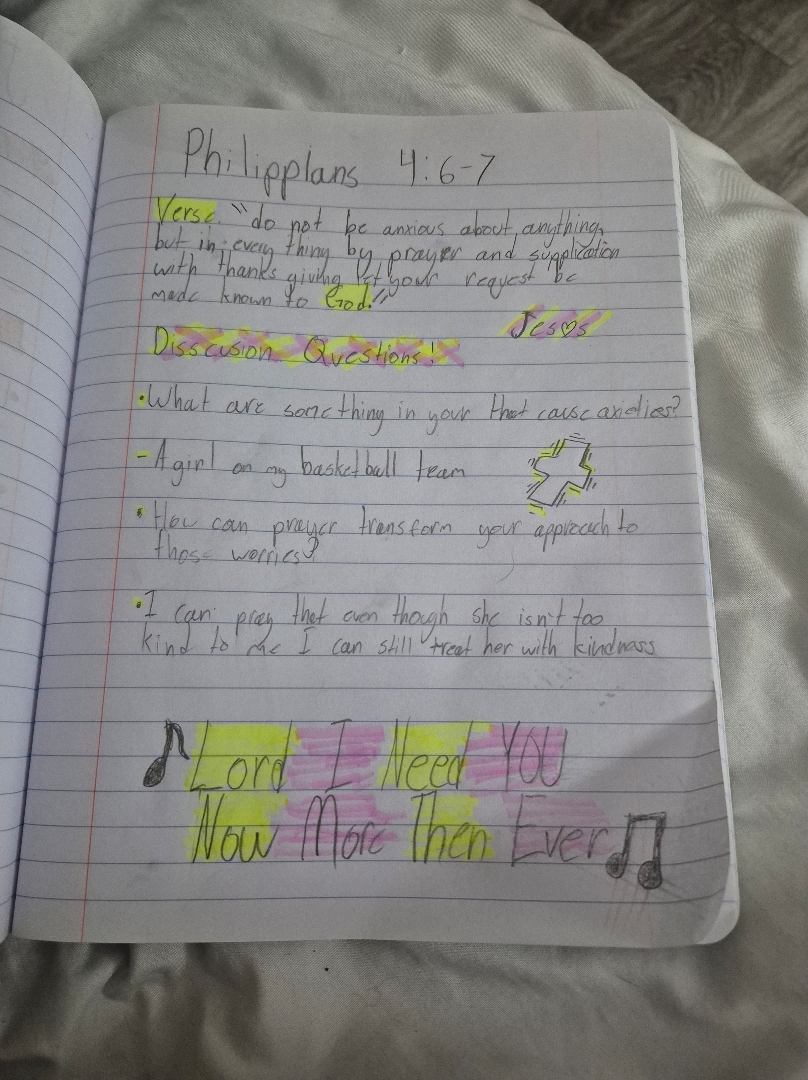 Philippians 4:6-7
Verse "do not be anxious about anything,
but in every thing by prayer and supplication
with thanks giving let your request be
made known to God."
Jes♡s
Disscusion Questions!
•What are something in your that cause axieties?
-A girl on my basketball team
•How can prayer transform your approach to
those worries?
•I can pray that even though she isn't too
kind to me I can still treat her with kindness
Lord I Need YOU
Now More Then Ever